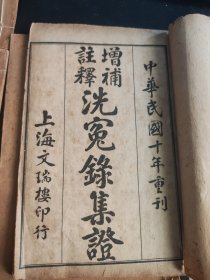 中華民國十年重刊
增補
註釋
洗冤錄集證
上海文瑞樓印行